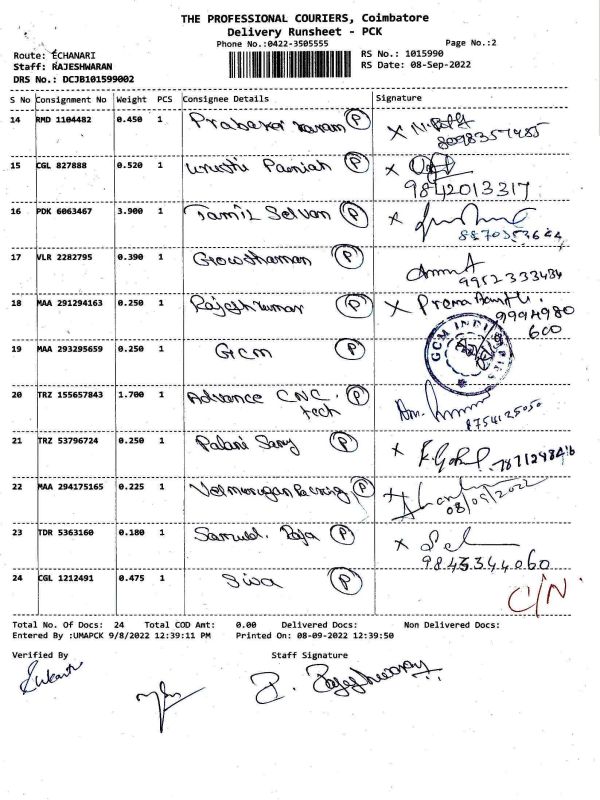 THE PROFESSIONAL COURIERS, Coimbatore
Delivery Runsheet - PCK
Phone No.:0422-3505555 Page No.:2
Route: ECHANARI RS No.: 1015990
Staff: RAJESHWARAN RS Date: 08-Sep-2022
DRS No.: DCJB101599002
S No Consignment No Weight PCS Consignee Details Signature
14 RMD 1104482 0.450 1 Prabakar P X
15 CGL 827888 0.520 1 P X
9842013317
16 PDK 6063467 3.900 1 Tamil Selvan P X
17 VLR 2282795 0.390 1 Gowthaman P
9952333434
18 MAA 291294163 0.250 1 Rajeshkumar P X Prema
9994980
600
19 MAA 293295659 0.250 1 GCM P GCM INDUSTRIES
20 TRZ 155657843 1.700 1 Advance CNC P
tech
8754125050
21 TRZ 53796724 0.250 1 Palani Samy P X
22 MAA 294175165 0.225 1 P X
08/09/2022
23 TDR 5363160 0.180 1 Samuel. Raja P X
9843344060
24 CGL 1212491 0.475 1 Siva P C/N.
Total No. Of Docs: 24 Total COD Amt: 0.00 Delivered Docs: Non Delivered Docs:
Entered By :UMAPCK 9/8/2022 12:39:11 PM Printed On: 08-09-2022 12:39:50
Verified By Staff Signature